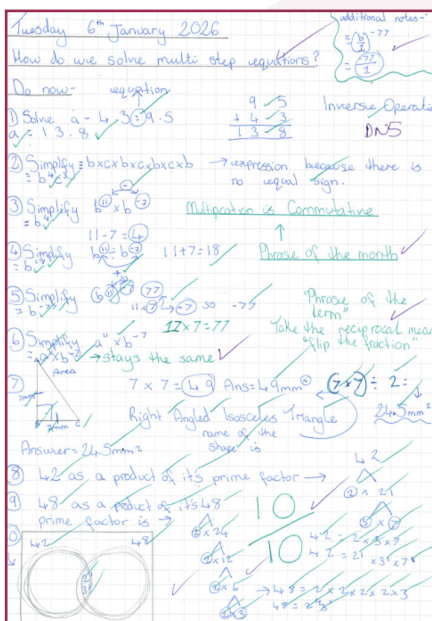 Tuesday 6th January 2026
How do we solve multi step equations?
additional notes-
= (b/1)^-77
= (-77/1)
Do now- equation
1) Solve a - 4.3 = 9.5
a = 13.8
9.5
+ 4.3
13.8
Inverse Operati
DN5
2) Simplify = b×c×b×c×b×c×b
= b⁴c³
→ expression because there is
no equal sign.
3) Simplify b^11 × b^-7
= b⁴
11-7=4
Multipcation is Commutative
↑
Phrase of the month
4) Simplify b^11 ÷ b^-7
11+7=18
5) Simplify (b^11)^-7
77
so -77
11×7=77
"Phrase of the
term"
Take the reciprocal mea
"flip the fraction"
6) Simplify a^11 × b^-7
→ stays the same
7)
Area
7mm
7mm
7 × 7 = 49 Ans = 49mm²
(7×7) ÷ 2 =
24.5mm²
Right Angled Isosceles Triangle
name of the
shape is
Answer = 24.5mm²
8) 42 as a product of its prime factor →
42
2 × 21
3 × 7
9) 48 as a product of its 48
prime factor is →
2 × 24
2 × 12
2 × 6
2 × 3
10
10
42 = 2 × 3 × 7
42 = 2¹ × 3¹ × 7¹
→ 48 = 2 × 2 × 2 × 2 × 3
42
48
2
3